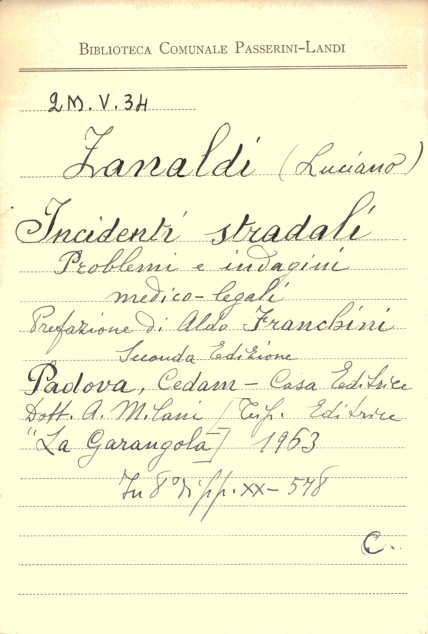 BIBLIOTECA COMUNALE PASSERINI-LANDI
2M.V.34
Zanaldi (Luciano)
Incidenti stradali
Problemi e indagini
medico-legali
Prefazione di Aldo Franchini
Seconda Edizione
Padova, Cedam - Casa Editrice
Dott. A. Milani [Tip. Editrice
"La Garangola] 1963
In 8° di pp. XX-578
C.